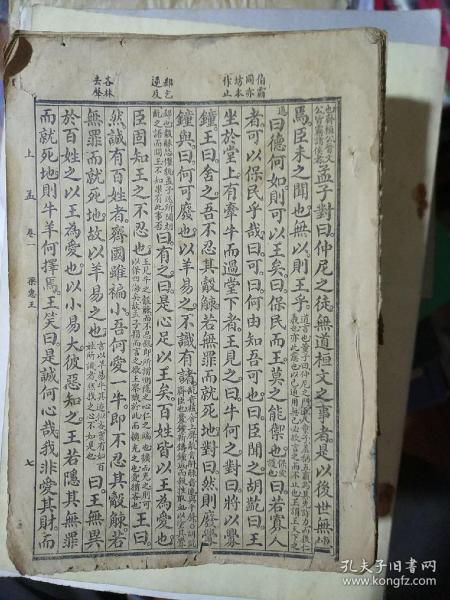 伯霸
同亦
坊本
作止
逆反
吝林
去聲
也齊桓公晉文公皆霸諸侯者孟子對曰仲尼之徒無道桓文之事者是以後世無傳
焉臣未之聞也無以則王乎
道曰德何如則可以王矣曰保民而王莫之能禦也保愛護也曰若寡人
者可以保民乎哉曰可曰何由知吾可也曰臣聞之胡齕曰王
坐於堂上有牽牛而過堂下者王見之曰牛何之對曰將以釁
鐘王曰舍之吾不忍其觳觫若無罪而就死地對曰然則廢釁
鐘與曰何可廢也以羊易之不識有諸
曰有之曰是心足以王矣百姓皆以王為愛也
臣固知王之不忍也王曰
然誠有百姓者齊國雖褊小吾何愛一牛即不忍其觳觫若
無罪而就死地故以羊易之也曰王無異
於百姓之以王為愛也以小易大彼惡知之王若隱其無罪
而就死地則牛羊何擇焉王笑曰是誠何心哉我非愛其財而
上孟 卷一 梁惠王 七
孔夫子旧书网